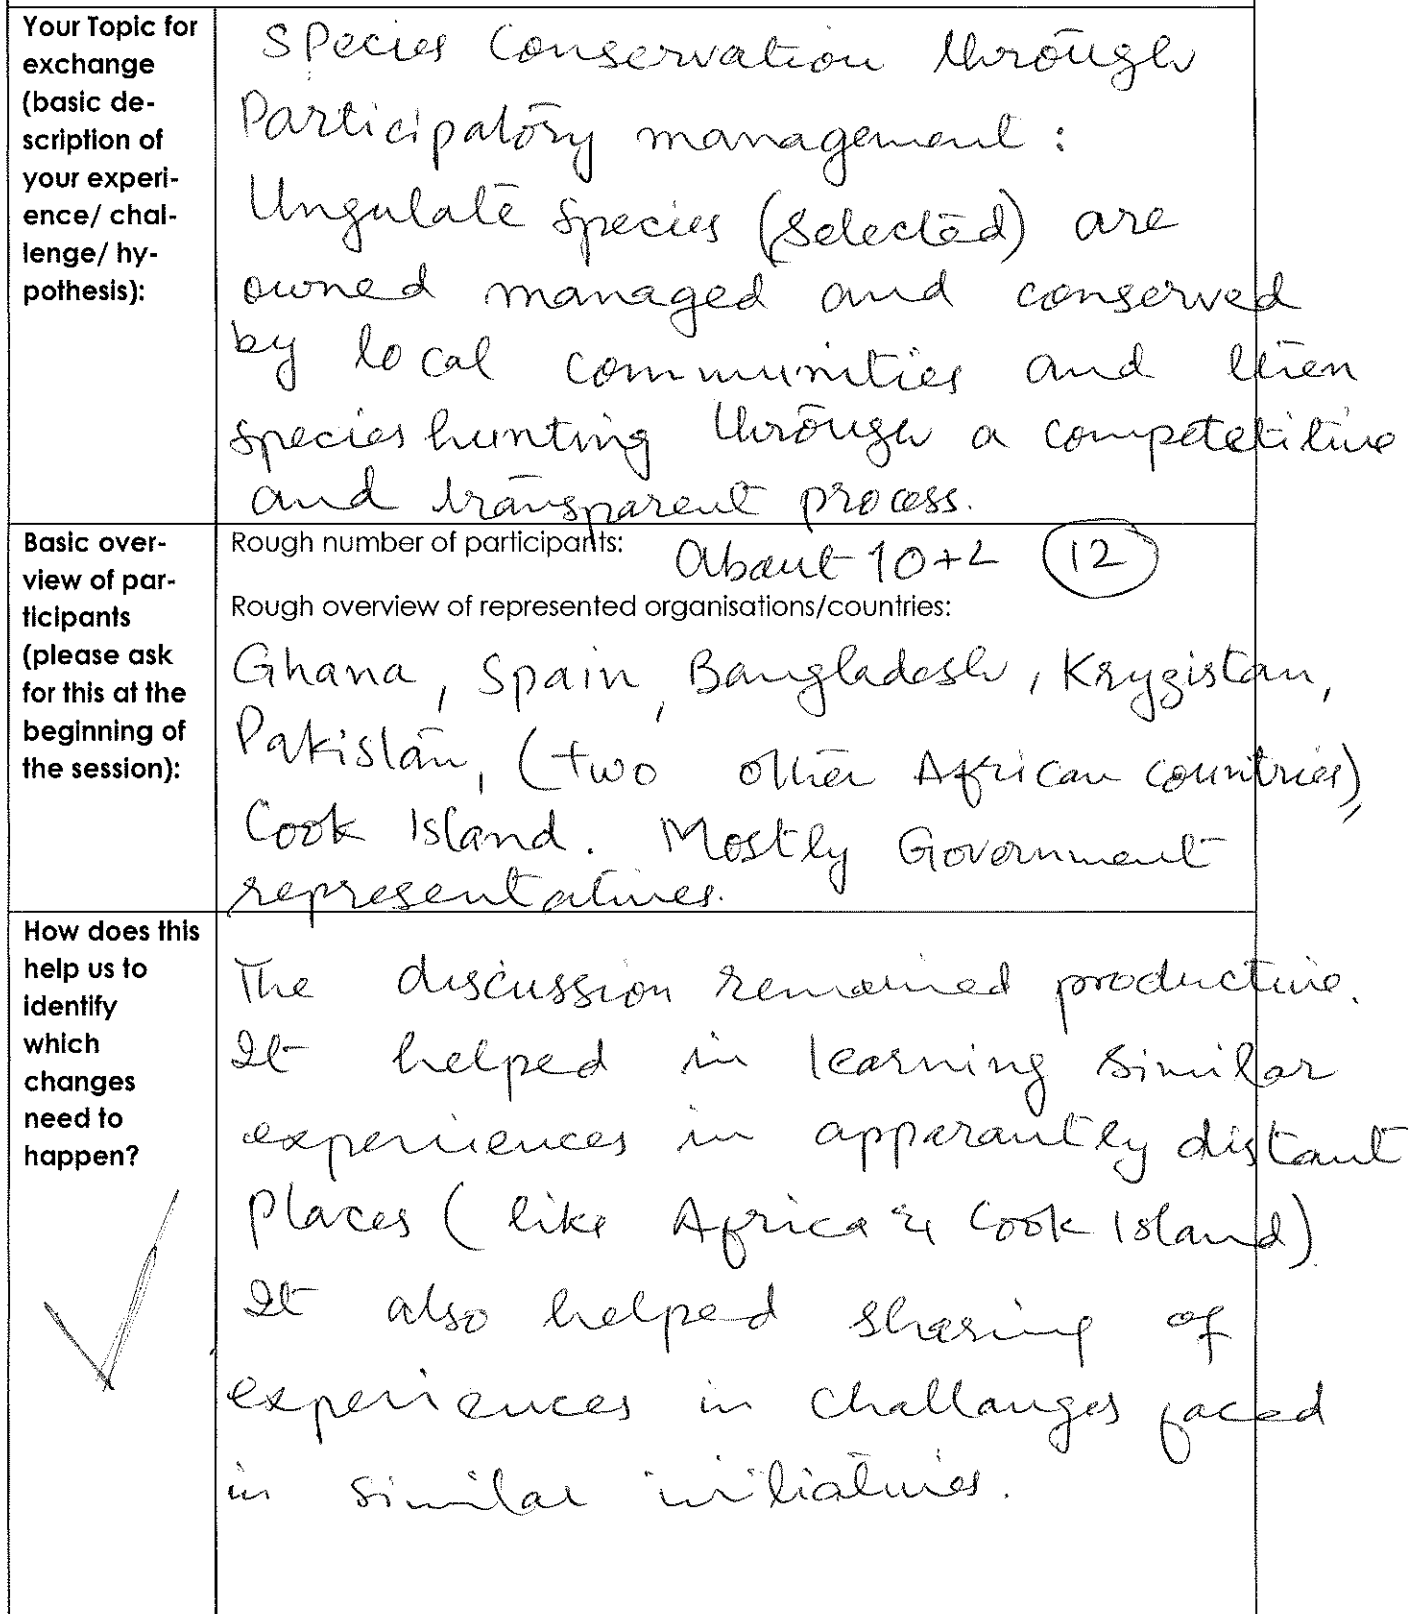 Your Topic for
exchange
(basic de-
scription of
your experi-
ence/ chal-
lenge/ hy-
pothesis):
Species Conservation through
Participatory management :
Ungulate species (selected) are
owned managed and conserved
by local communities and then
species hunting through a competetitive
and transparent process.
Basic over-
view of par-
ticipants
(please ask
for this at the
beginning of
the session):
Rough number of participants: About 10+2 (12)
Rough overview of represented organisations/countries:
Ghana, Spain, Bangladesh, Krygistan,
Pakistan, (two other African countries),
Cook Island. Mostly Government
representatives.
How does this
help us to
identify
which
changes
need to
happen?
The discussion remained productive.
It helped in learning similar
experiences in apparantly distant
places (like Africa & Cook Island)
It also helped sharing of
experiences in challanges faced
in similar initiatives.